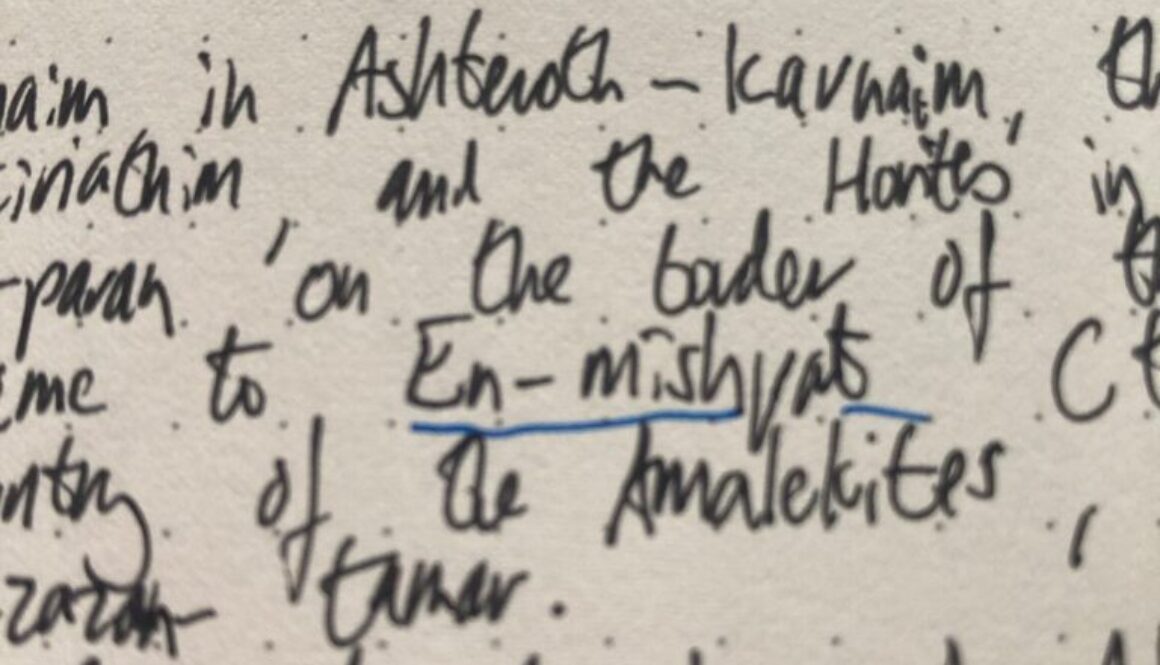 naim in Ashteroth-karnaim, th
kiriathim and the Horites in
-paran, on the border of t
me to En-mishpat C t
ntry of the Amalekites,
zazan-tamar.